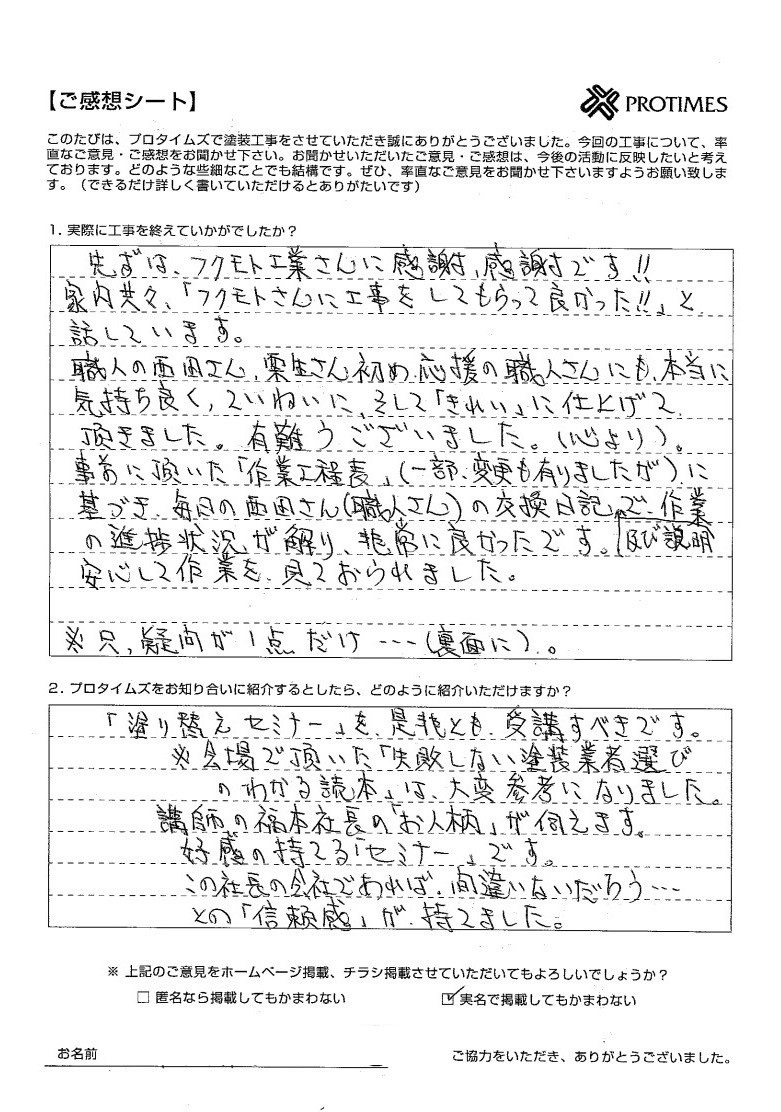 【ご感想シート】
PROTIMES
このたびは、プロタイムズで塗装工事をさせていただき誠にありがとうございました。今回の工事について、率
直なご意見・ご感想をお聞かせ下さい。お聞かせいただいたご意見・ご感想は、今後の活動に反映したいと考え
ております。どのような些細なことでも結構です。ぜひ、率直なご意見をお聞かせ下さいますようお願い致しま
す。（できるだけ詳しく書いていただけるとありがたいです）
1. 実際に工事を終えていかがでしたか？
先ずは、フクモト工業さんに感謝、感謝です!!
家内共々、「フクモトさんに工事をしてもらって良かった!!」と
話しています。
職人の西田さん、粟生さん初め、応援の職人さんにも、本当に
気持ち良く、ていねいに、そして「きれい」に仕上げて
頂きました。有難うございました。(心より)。
事前に頂いた「作業工程表」(一部、変更も有りましたが)に
基づき、毎日の西田さん(職人さん)の交換日記で、作業
の進捗状況が解り、非常に良かったです。及び説明
安心して作業を、見ておられました。
※只、疑問が1点だけ…(裏面に)。
2. プロタイムズをお知り合いに紹介するとしたら、どのように紹介いただけますか？
「塗り替えセミナー」を、是非とも、受講すべきです。
※会場で頂いた「失敗しない塗装業者選び
のわかる読本」は、大変参考になりました。
講師の福本社長の「お人柄」が伺えます。
好感の持てる「セミナー」です。
この社長の会社であれば、間違いないだろう…
との「信頼感」が、持てました。
※ 上記のご意見をホームページ掲載、チラシ掲載させていただいてもよろしいでしょうか？
□ 匿名なら掲載してもかまわない ☑ 実名で掲載してもかまわない
お名前 ご協力をいただき、ありがとうございました。